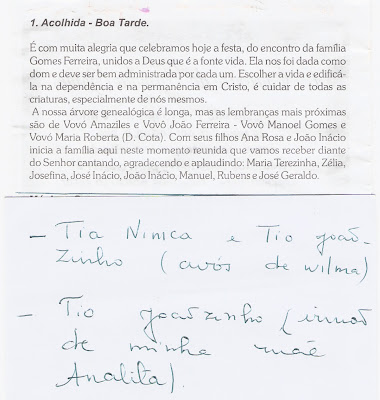 1. Acolhida - Boa Tarde.
É com muita alegria que celebramos hoje a festa, do encontro da família
Gomes Ferreira, unidos a Deus que é a fonte vida. Ela nos foi dada como
dom e deve ser bem administrada por cada um. Escolher a vida e edificá-
la na dependência e na permanência em Cristo, é cuidar de todas as
criaturas, especialmente de nós mesmos.
A nossa árvore genealógica é longa, mas as lembranças mais próximas
são de Vovó Amaziles e Vovô João Ferreira - Vovô Manoel Gomes e
Vovó Maria Roberta (D. Cota). Com seus filhos Ana Rosa e João Inácio
inicia a família aqui neste momento reunida que vamos receber diante
do Senhor cantando, agradecendo e aplaudindo: Maria Terezinha, Zélia,
Josefina, José Inácio, João Inácio, Manuel, Rubens e José Geraldo.
- Tia Ninica e Tio João-
zinho (avós de Wilma)
- Tio Joãozinho (irmão
de minha mãe
Analita).